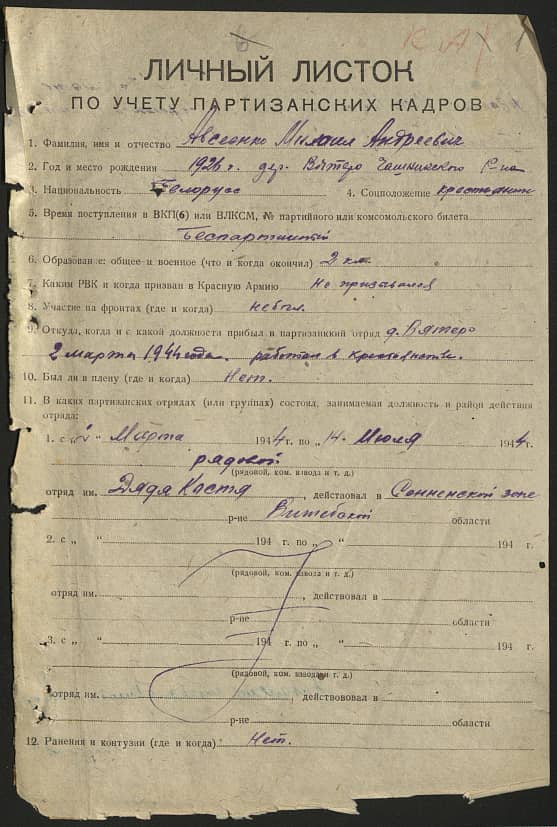 6
К А 1
ЛИЧНЫЙ ЛИСТОК
ПО УЧЕТУ ПАРТИЗАНСКИХ КАДРОВ
1. Фамилия, имя и отчество Авсеенко Михаил Андреевич
2. Год и место рождения 1926 г. дер. Вятеро Чашникского р-на
3. Национальность Белорусс 4. Соцположение
5. Время поступления в ВКП(б) или ВЛКСМ, № партийного или комсомольского билета
Беспартийный
6. Образование: общее и военное (что и когда окончил) 2 кл.
7. Каким РВК и когда призван в Красную Армию Не призывался
8. Участие на фронтах (где и когда) небыл.
9. Откуда, когда и с какой должности прибыл в партизанский отряд д. Вятеро
2 марта 1944 года. работал в крестьянстве.
10. Был ли в плену (где и когда) Нет.
11. В каких партизанских отрядах (или группах) состоял, занимаемая должность и район действия
отряда:
1. с „ “ Марта 1944 г. по „14“ Июля 1944 г.
рядовой
(рядовой, ком. взвода и т. д.)
отряд им. Дяда Костя, действовал в Сенненской зоне
р-не Витебской области
2. с „ “ 194 г. по „ “ 194 г.
(рядовой, ком. взвода и т. д.)
отряд им. , действовал в
р-не области
3. с „ “ 194 г. по „ “ 194 г.
(рядовой, ком. взвода и т. д.)
отряд им. , действововал в
р-не области
12. Ранения и контузии (где и когда) Нет.